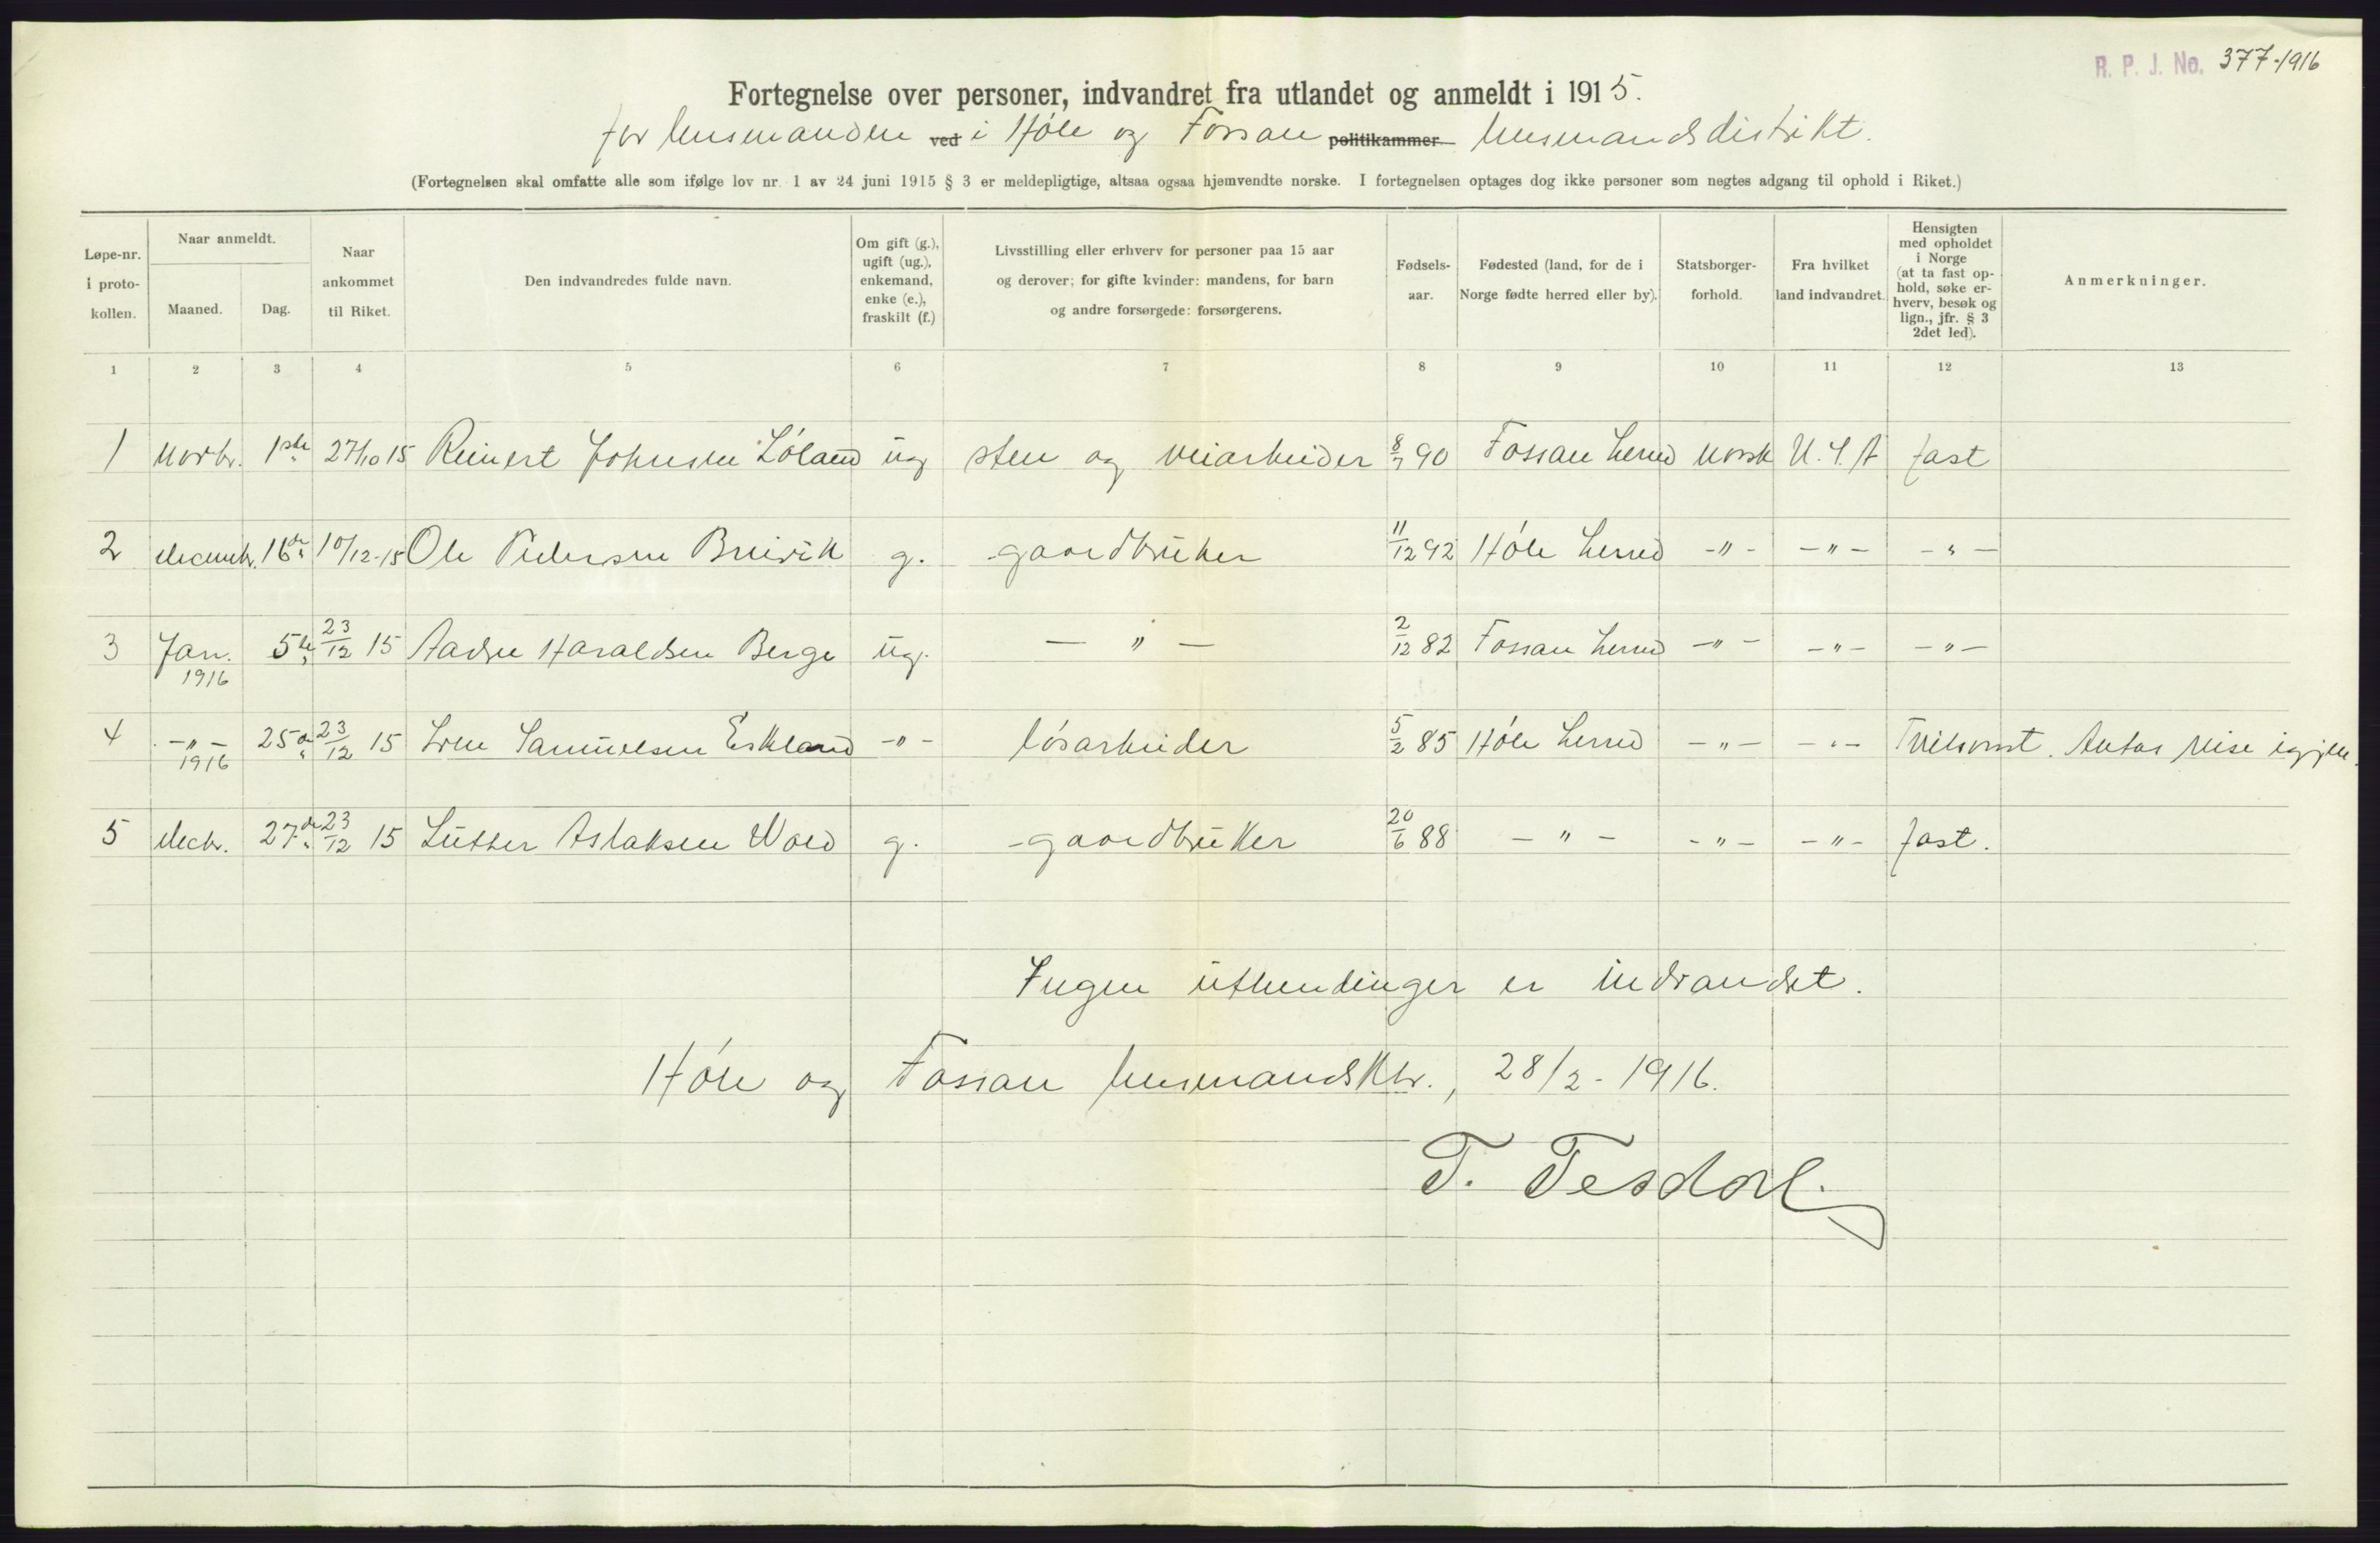 R. P. J. No. 377-1916
Fortegnelse over personer, indvandret fra utlandet og anmeldt i 1915.
for lensmanden ved i Høle og Fossan politikammer lensmandsdistrikt.
(Fortegnelsen skal omfatte alle som ifølge lov nr. 1 av 24 juni 1915 § 3 er meldepligtige, altsaa ogsaa hjemvendte norske. I fortegnelsen optages dog ikke personer som negtes adgang til ophold i Riket.)
Løpe-nr. i proto-kollen.
Naar anmeldt.
Maaned.
Dag.
Naar ankommet til Riket.
Den indvandredes fulde navn.
Om gift (g.), ugift (ug.), enkemand, enke (e.), fraskilt (f.)
Livsstilling eller erhverv for personer paa 15 aar og derover; for gifte kvinder: mandens, for barn og andre forsørgede: forsørgerens.
Fødsels-aar.
Fødested (land, for de i Norge fødte herred eller by).
Statsborger-forhold.
Fra hvilket land indvandret.
Hensigten med opholdet i Norge (at ta fast op-hold, søke er-hverv, besøk og lign., jfr. § 3 2det led).
Anmerkninger.
1 2 3 4 5 6 7 8 9 10 11 12 13
1 Novbr. 1ste 27/10 15 Reinert Johnsen Løland ug sten og veiarbeider 8/7 90 Fossan herred norsk U.S.A fast
2 decembr. 16de 10/12-15 Ole Pedersen Breivik g. gaardbruker 11/12 92 Høle herred -"- -"- -"-
3 Jan. 1916 5te 23/12 15 Aadne Haraldsen Berge ug. -"- 2/12 82 Fossan herred -"- -"- -"-
4 -"- 1916 25de 23/12 15 Sven Samuelsen Eskeland -"- løsarbeider 5/2 85 Høle herred -"- -"- Tvilsomt. Antas reise igjen.
5 decbr. 27de 23/12 15 Luther Aslaksen Wold g. gaardbruker 20/6 88 -"- -"- -"- fast.
Ingen utlendinger er indvandret.
Høle og Fossan lensmandsktr., 28/2-1916.
T. Tesdal